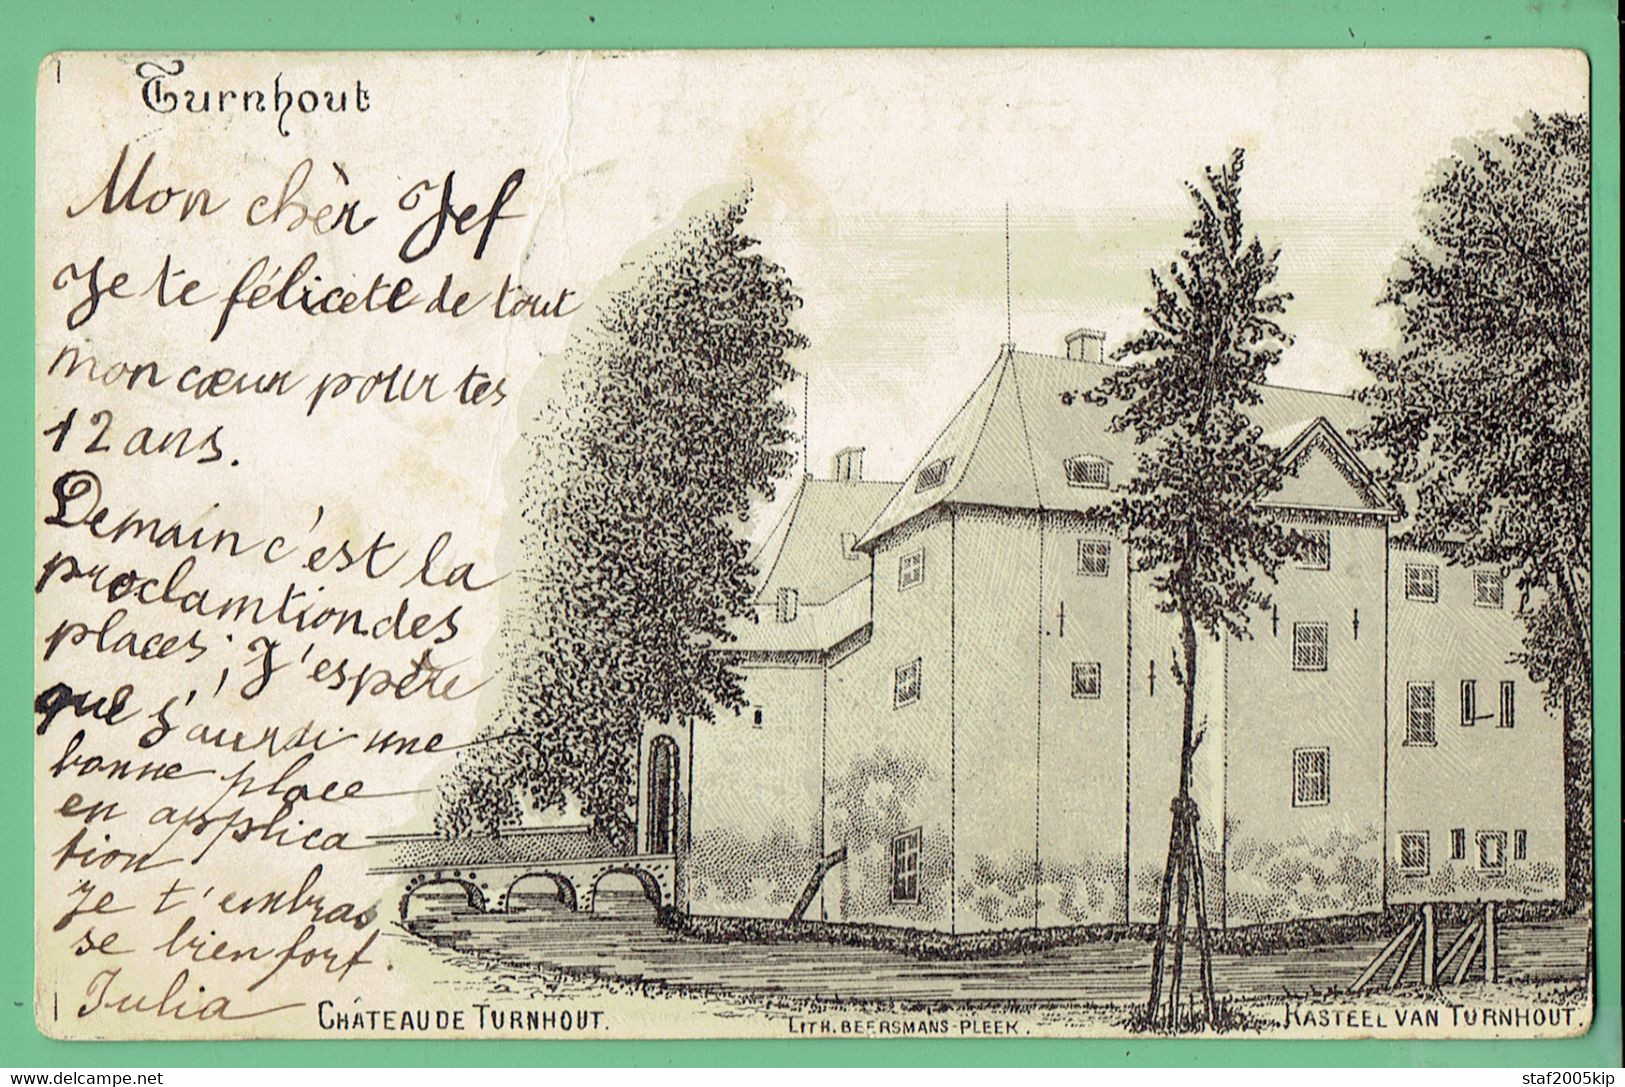 Turnhout
Mon chèr Jef
Je te félicete de tout
mon cœur pour tes
12 ans.
Demain c'est la
proclamtion des
places; J'espère
que j'aurai une
bonne place
en applica
tion
Je t'embras
se bien fort.
Julia
CHÂTEAU DE TURNHOUT.
LITH. BEERSMANS-PLEEK.
KASTEEL VAN TURNHOUT.
staf2005kip